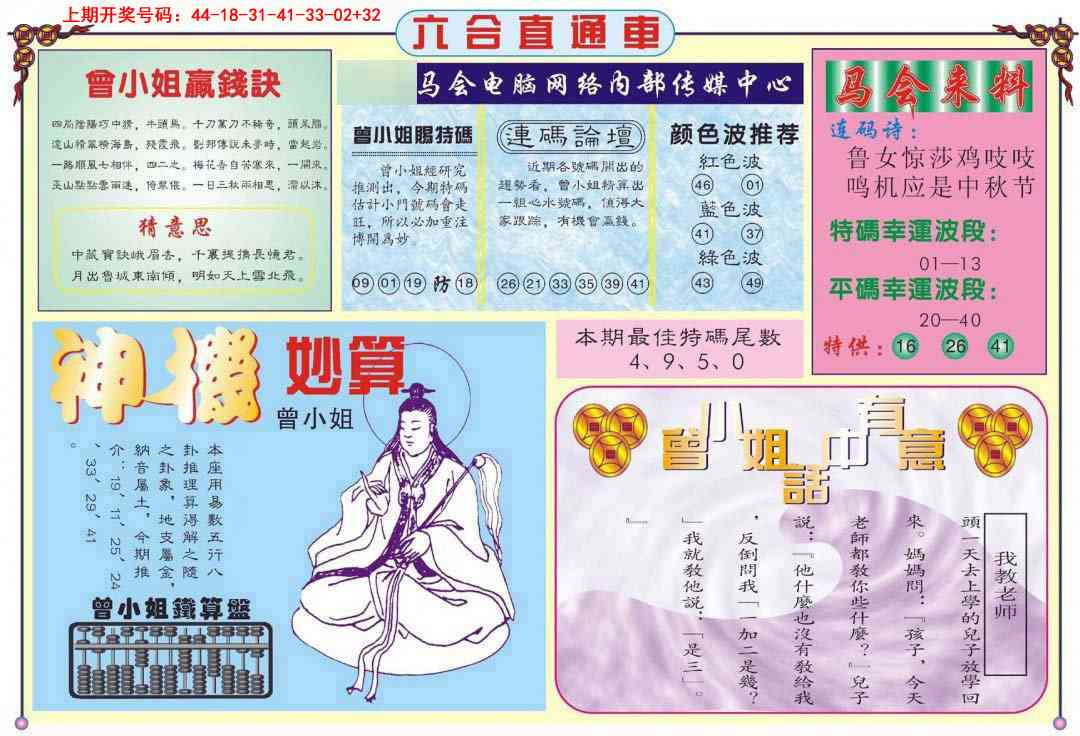 上期开奖号码：44-18-31-41-33-02+32
六合直通車
曾小姐贏錢訣
四局陰陽巧中猜，牛頭馬。千刀萬刀不稀奇，頭采勝。
遠山積翠橫海島，殘霞飛。劉邦傳說未夢時，當起岩。
一路順風七相伴，四二之。梅花香自苦寒來，一開來。
巫山點點雲雨迷，倚翠偎。一日三秋兩相思，濡以沫。
猜意思
中藏寶訣峨眉去，千裏提攜長憶君。
月出魯城東南傾，明如天上雪北飛。
马会电脑网络内部传媒中心
曾小姐賜特碼
曾小姐經研究
推測出，今期特碼
估計小門號碼會走
旺，所以必加重注
博開爲妙
09 01 19 防 18
連碼論壇
近期各號碼開出的
趨勢看，曾小姐精算出
一組心水號碼，值得大
家跟踪，有機會贏錢。
26 21 33 35 39 41
颜色波推荐
紅色波
46 01
藍色波
41 37
綠色波
43 49
马会来料
连码诗：
鲁女惊莎鸡吱吱
鸣机应是中秋节
特碼幸運波段：
01—13
平碼幸運波段：
20—40
特供：16 26 41
神機妙算
曾小姐
本座用易數五行八
卦推理算得解之隨
之卦象，地支屬金，
納音屬土，今期推
介：19、11、25、24
、33、29、41
。
曾小姐鐵算盤
本期最佳特碼尾數
4、9、5、0
曾小姐話中有意
我教老师
頭一天去上學的兒子放學回
來。媽媽問：『孩子，今天
老師都教你些什麼？』兒子
說：『他什麼也沒有教給我
，反倒問我「一加二是幾？
」我就教他說：「是三」。
』